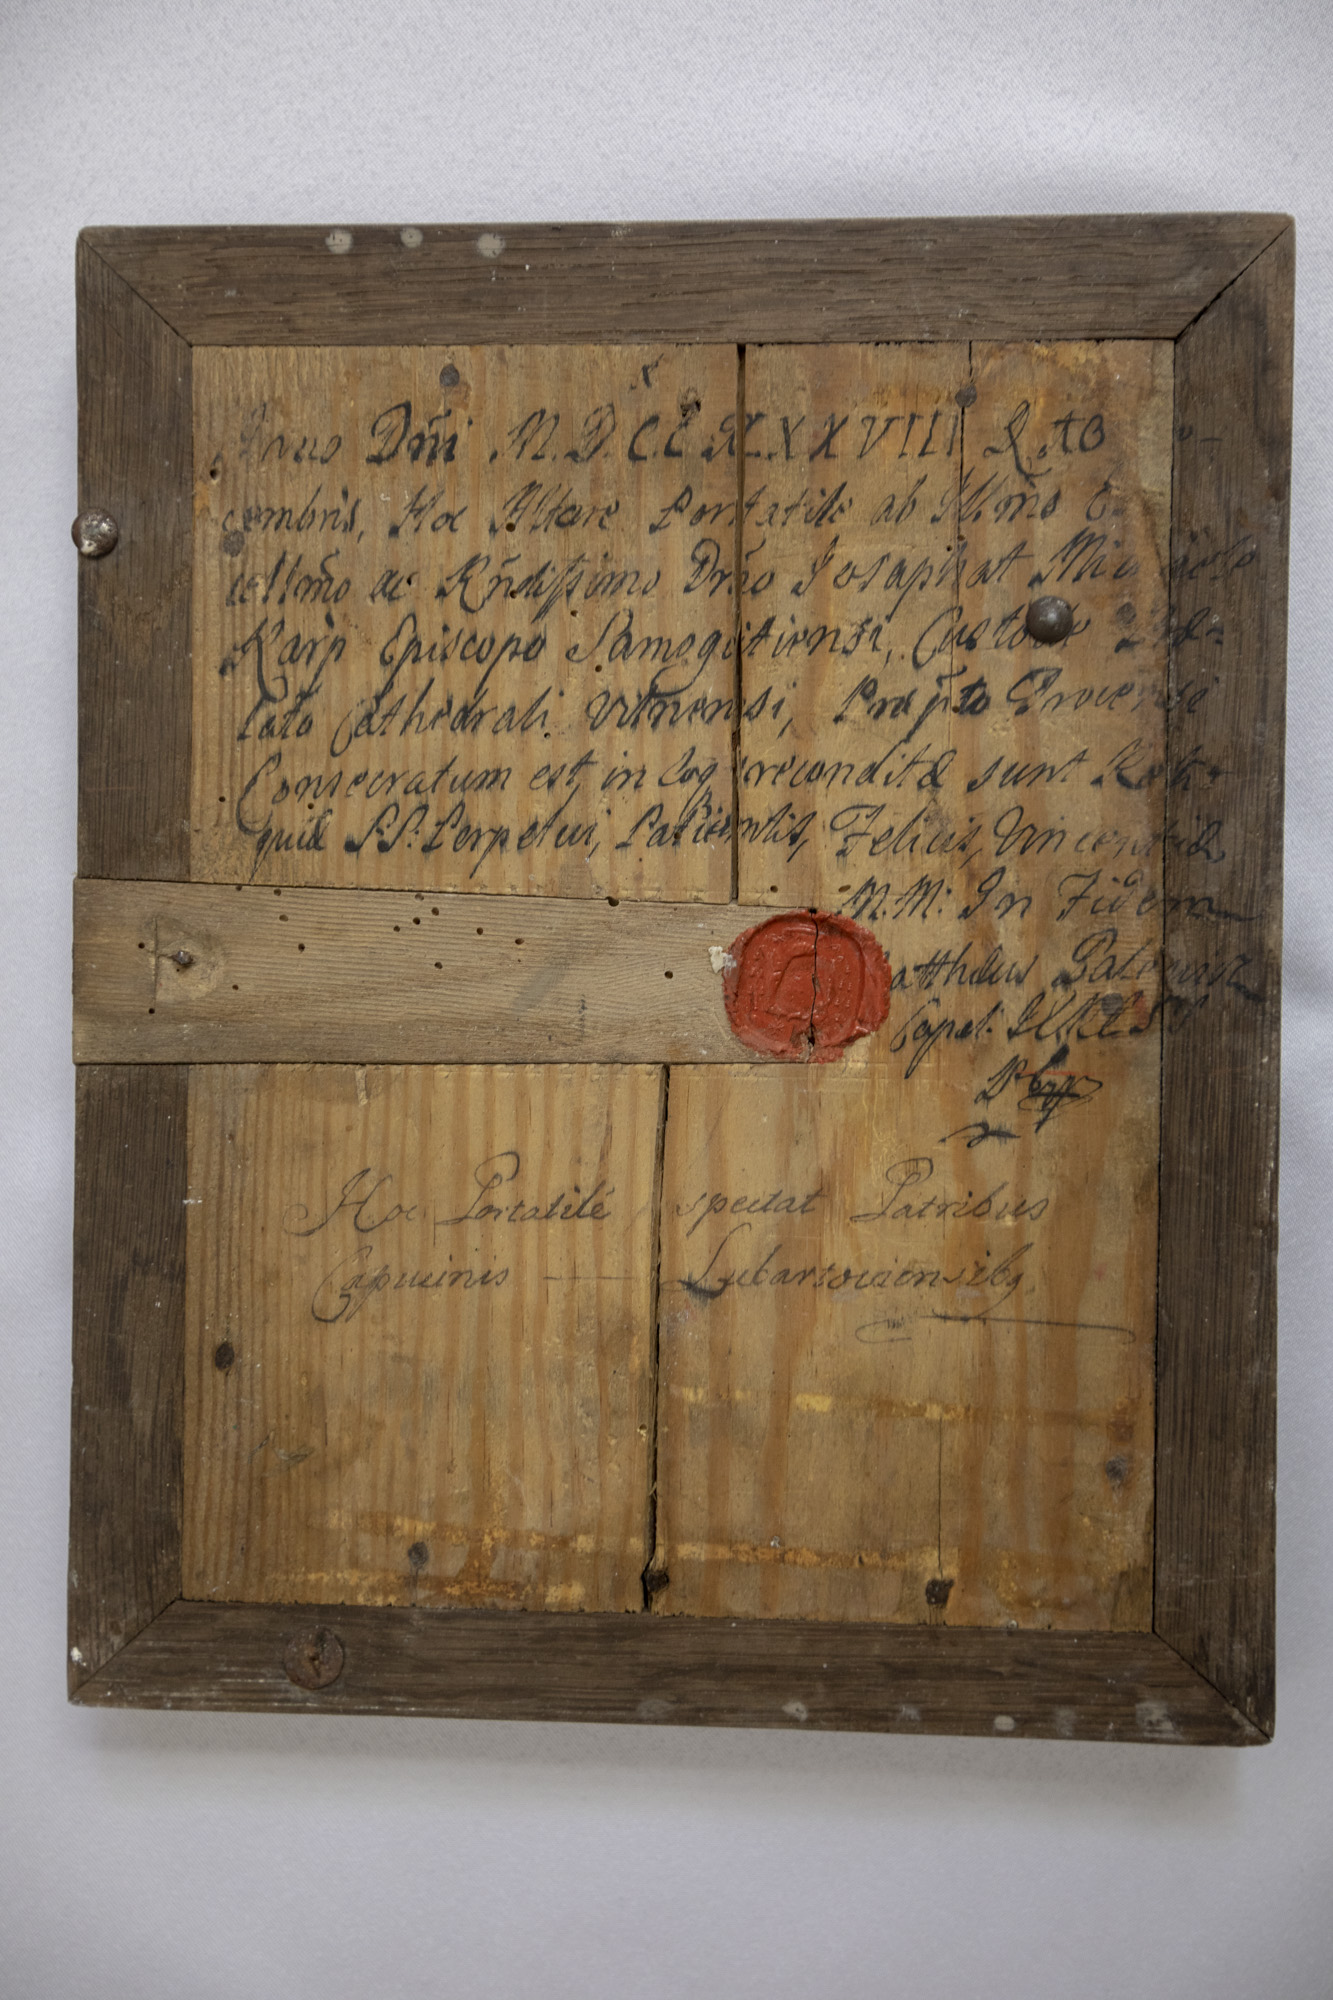 Anno Dñi M.D.C.C.XXXVIII
cembris, Hoc Altare Portatile ab Illm̃o
cellm̃o ac Rñdissimo Dño Josaphat Michaele
Karp Episcopo Samogitiensi, Custode Præ-
lato Cathedrali Vilnensi,
Consecratum est, in eoq recondita sunt Reli-
quiæ S.S. Perpetui, Patientis, Felicis, Vincentii
M.M. In Fidem
atthæus
Capel.
Hoc Portatilé spectat Patribus
Capucinis — Lubartoviensibq.